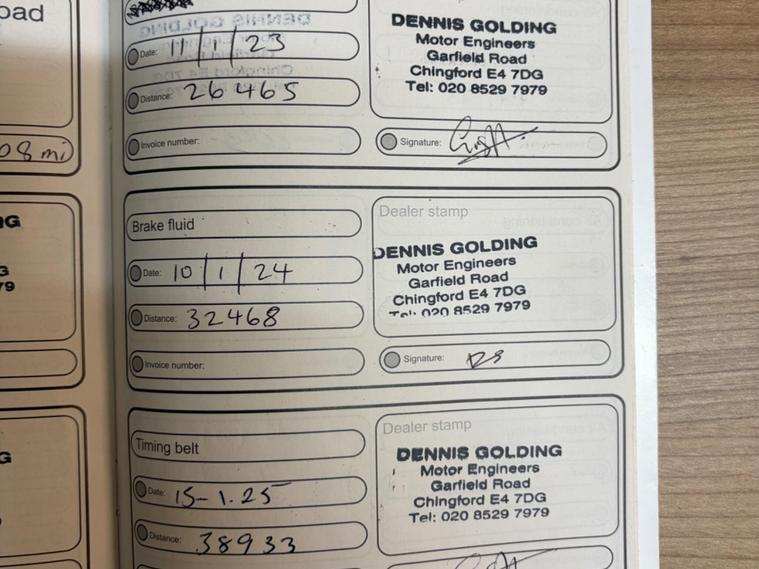 oad
DENNIS GOLDING
Date: 11/1/23
Motor Engineers
Garfield Road
Chingford E4 7DG
Tel: 020 8529 7979
Distance: 26465
Invoice number:
Signature:
08 mi
Brake fluid
Dealer stamp
DENNIS GOLDING
Motor Engineers
Garfield Road
Chingford E4 7DG
Tel: 020 8529 7979
Date: 10/1/24
Distance: 32468
Invoice number:
Signature:
NG
3
79
Timing belt
Dealer stamp
DENNIS GOLDING
Motor Engineers
Garfield Road
Chingford E4 7DG
Tel: 020 8529 7979
Date: 15-1.25
Distance: 38933
G